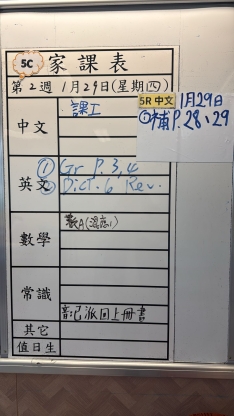 5C 家課表
第2週 1月29日(星期四)
中文 課工
英文 ① Gr P.3,4
② Dict. 6 Rev.
數學
常識
其它
值日生
5R 中文 1月29日
①補P.28、29